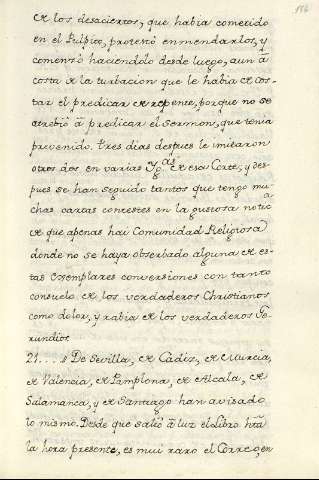 186
de los desaciertos, que había cometido
en el Pulpito, protestó enmendarlos, y
comenzó haciendolo desde luego, aun â
costa de la turbacion que le había de cos-
tar el predicar de repente, porque no se
atrebió â predicar el Sermon, que tenia
prevenido. Tres dias despues le imitaron
otros dos en varias Yg.as de esa Corte, y des-
pues se han seguido tantos que tengo mu-
chas cartas contestes en la gustosa notic.a
de que apenas hai Comunidad Religiosa
donde no se haya observado alguna de es-
tas exemplares conversiones con tanto
consuelo de los verdaderos Christianos
como dolor, y rabia de los verdaderos Ge-
rundios.
21.... De Sevilla, de Cadiz, de Murcia,
de Valencia, de Pamplona, de Alcala, de
Salamanca, y de Santiago han avisado
lo mismo. Desde que salió â luz el Libro hta
la hora presente, es mui raro el Correo, en